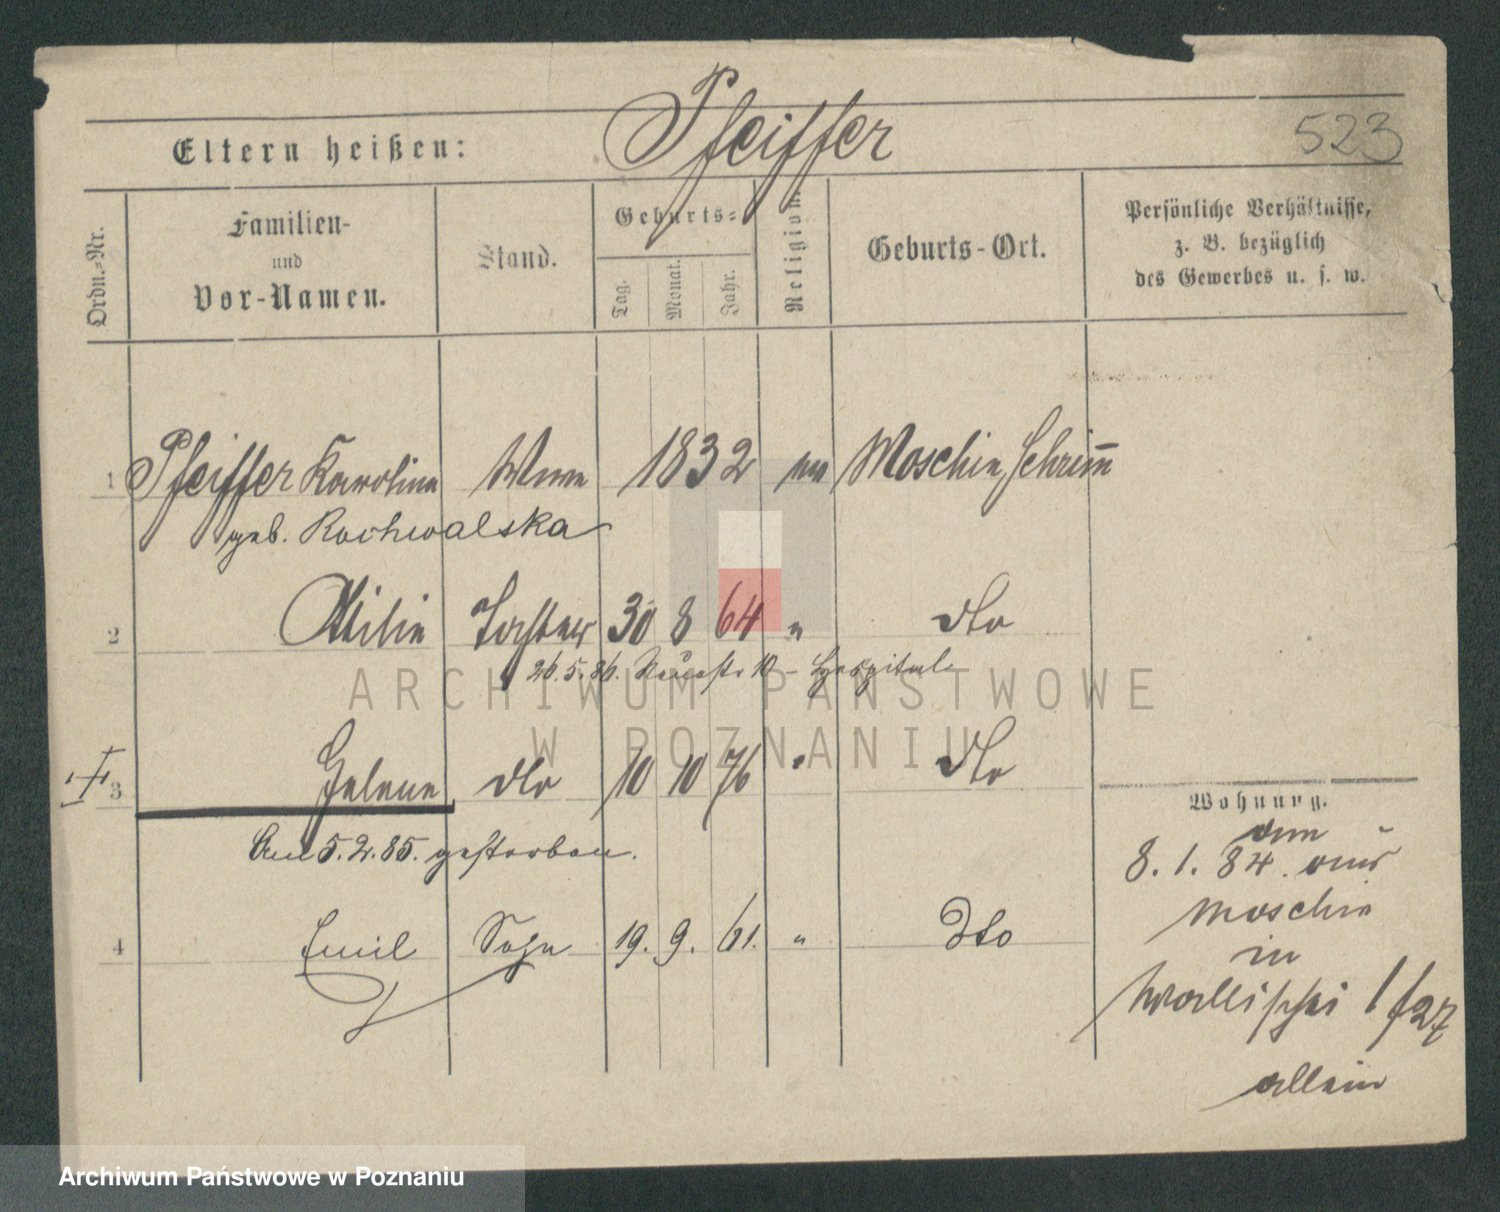 Pfeiffer
523
Eltern heißen:
Ordn.-Nr.
Familien- und Vor-Namen.
Stand.
Geburts-
Tag.
Monat.
Jahr.
Religion.
Geburts-Ort.
Persönliche Verhältnisse,
z. B. bezüglich
des Gewerbes u. s. w.
1 Pfeiffer Karoline Wwe 1832 Moschin, Schrim̅
geb. Rochwalska
2 Ottilie Tochter 30 8 64 " dto
26.5.86. Neuestr. 10 - Hospital
3 Helene dto 10 10 76 " dto
Am 5.2.85. gestorben.
4 Emil Sohn 19. 9. 61. " Dto
Wohnung.
vom
8. 1. 84. aus
Moschin
in
Wallischei 1/27
allein
ARCHIWUM PAŃSTWOWE
W POZNANIU
Archiwum Państwowe w Poznaniu